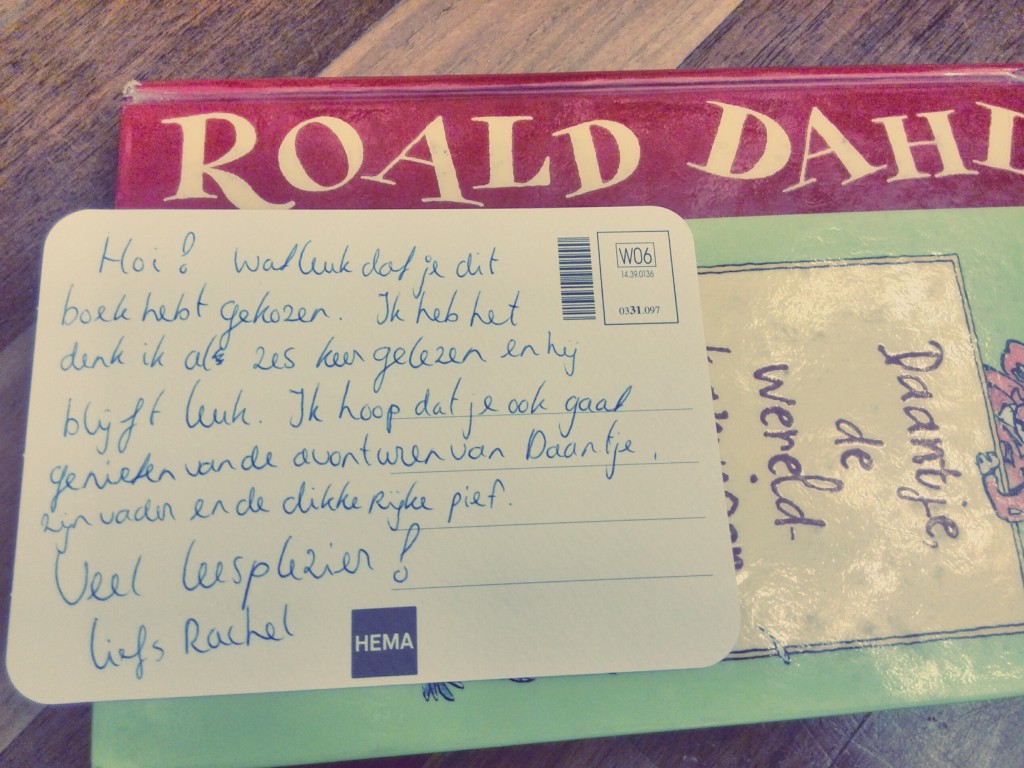 ROALD DAHL
Hoi! Wat leuk dat je dit
boek hebt gekozen. Ik heb het
denk ik als zes keer gelezen en hij
blijft leuk. Ik hoop dat je ook gaat
genieten van de avonturen van Daantje,
zijn vader en de dikke rijke pief.
Veel leesplezier!
liefs Rachel
HEMA
W06
14.39.0136
0331.097
Daantje,
de
wereld-